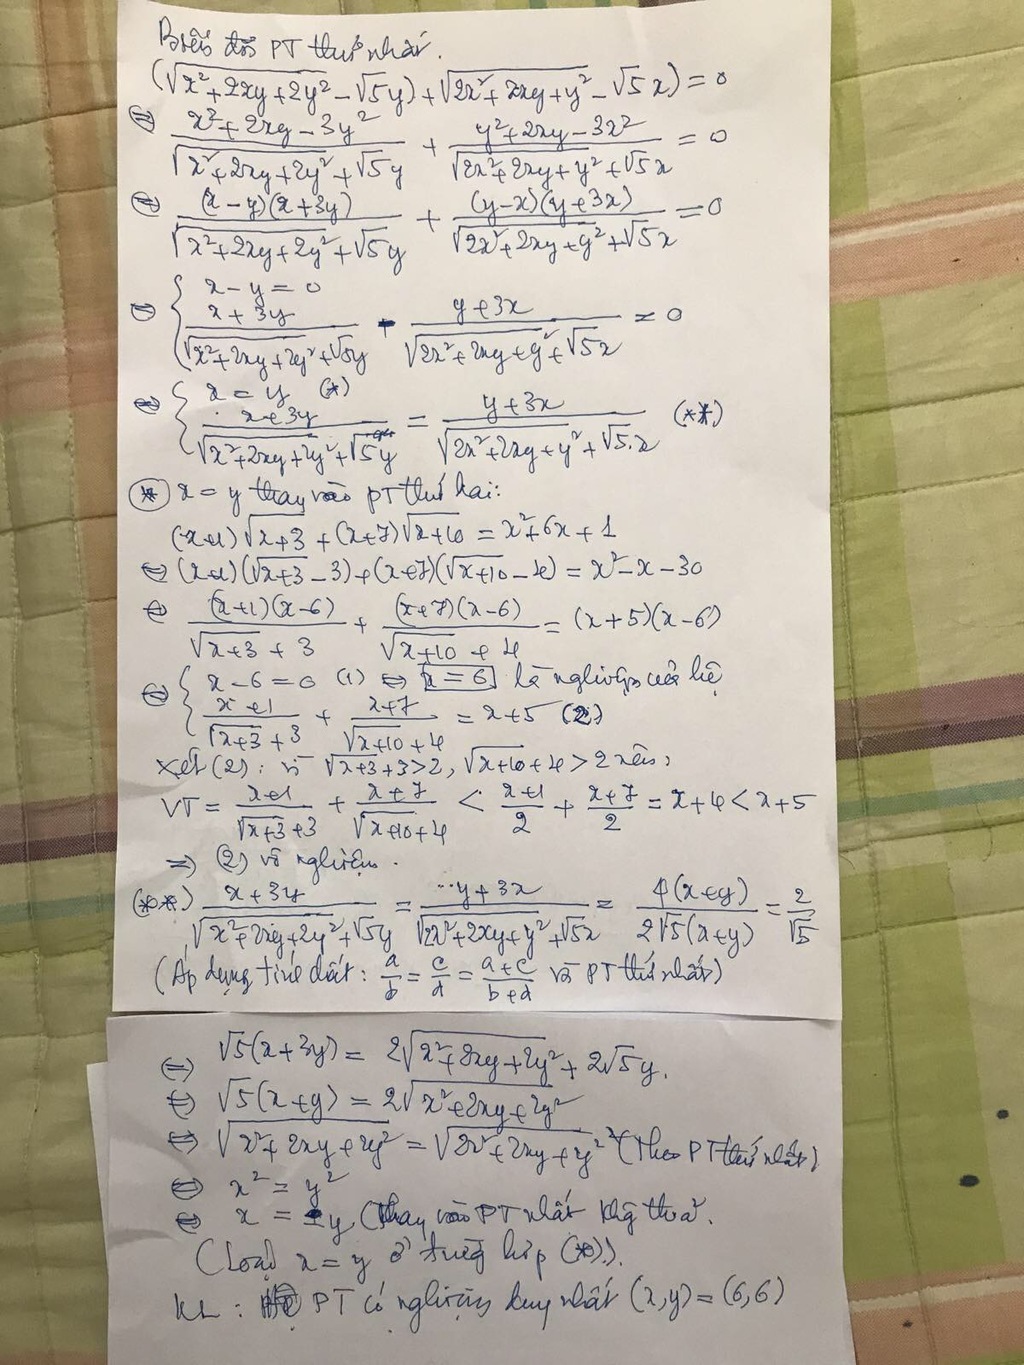 Biến đổi PT thứ nhất.
(√(x²+2xy+2y²) - √5y) + √(2x²+2xy+y²) - √5x) = 0
⇔ (x²+2xy-3y²)/(√(x²+2xy+2y²)+√5y) + (y²+2xy-3x²)/(√(2x²+2xy+y²)+√5x) = 0
⇔ ((x-y)(x+3y))/(√(x²+2xy+2y²)+√5y) + ((y-x)(y+3x))/(√(2x²+2xy+y²)+√5x) = 0
⇔ { x-y=0
(x+3y)/(√(x²+2xy+2y²)+√5y) - (y+3x)/(√(2x²+2xy+y²)+√5x) = 0
⇔ { x=y (*)
(x+3y)/(√(x²+2xy+2y²)+√5y) = (y+3x)/(√(2x²+2xy+y²)+√5.x) (**)
(*) x=y thay vào PT thứ hai:
(x+1)√(x+3) + (x+7)√(x+10) = x²+6x+1
⇔ (x+1)(√(x+3)-3)+(x+7)(√(x+10)-4) = x²-x-30
⇔ ((x+1)(x-6))/(√(x+3)+3) + ((x+7)(x-6))/(√(x+10)+4) = (x+5)(x-6)
⇔ { x-6=0 (1) ⇔ x=6 là nghiệm của hệ
(x+1)/(√(x+3)+3) + (x+7)/(√(x+10)+4) = x+5 (2)
Xét (2): vì √(x+3)+3>2, √(x+10)+4>2 nên:
VT = (x+1)/(√(x+3)+3) + (x+7)/(√(x+10)+4) < (x+1)/2 + (x+7)/2 = x+4 < x+5
⇒ (2) vô nghiệm.
(**) (x+3y)/(√(x²+2xy+2y²)+√5y) = (y+3x)/(√(2x²+2xy+y²)+√5x) = (4(x+y))/(2√5(x+y)) = 2/√5
(Áp dụng tính chất: a/b = c/d = (a+c)/(b+d) và PT thứ nhất)
⇔ √5(x+3y) = 2√(x²+2xy+2y²) + 2√5y.
⇔ √5(x+y) = 2√(x²+2xy+2y²)
⇔ √(x²+2xy+2y²) = √(2x²+2xy+y²) (Theo PT thứ nhất)
⇔ x² = y²
⇔ x = -y (thay vào PT nhất không thoả.
(Loại x=y ở trường hợp (*)).
KL: Hệ PT có nghiệm duy nhất (x,y)=(6,6)